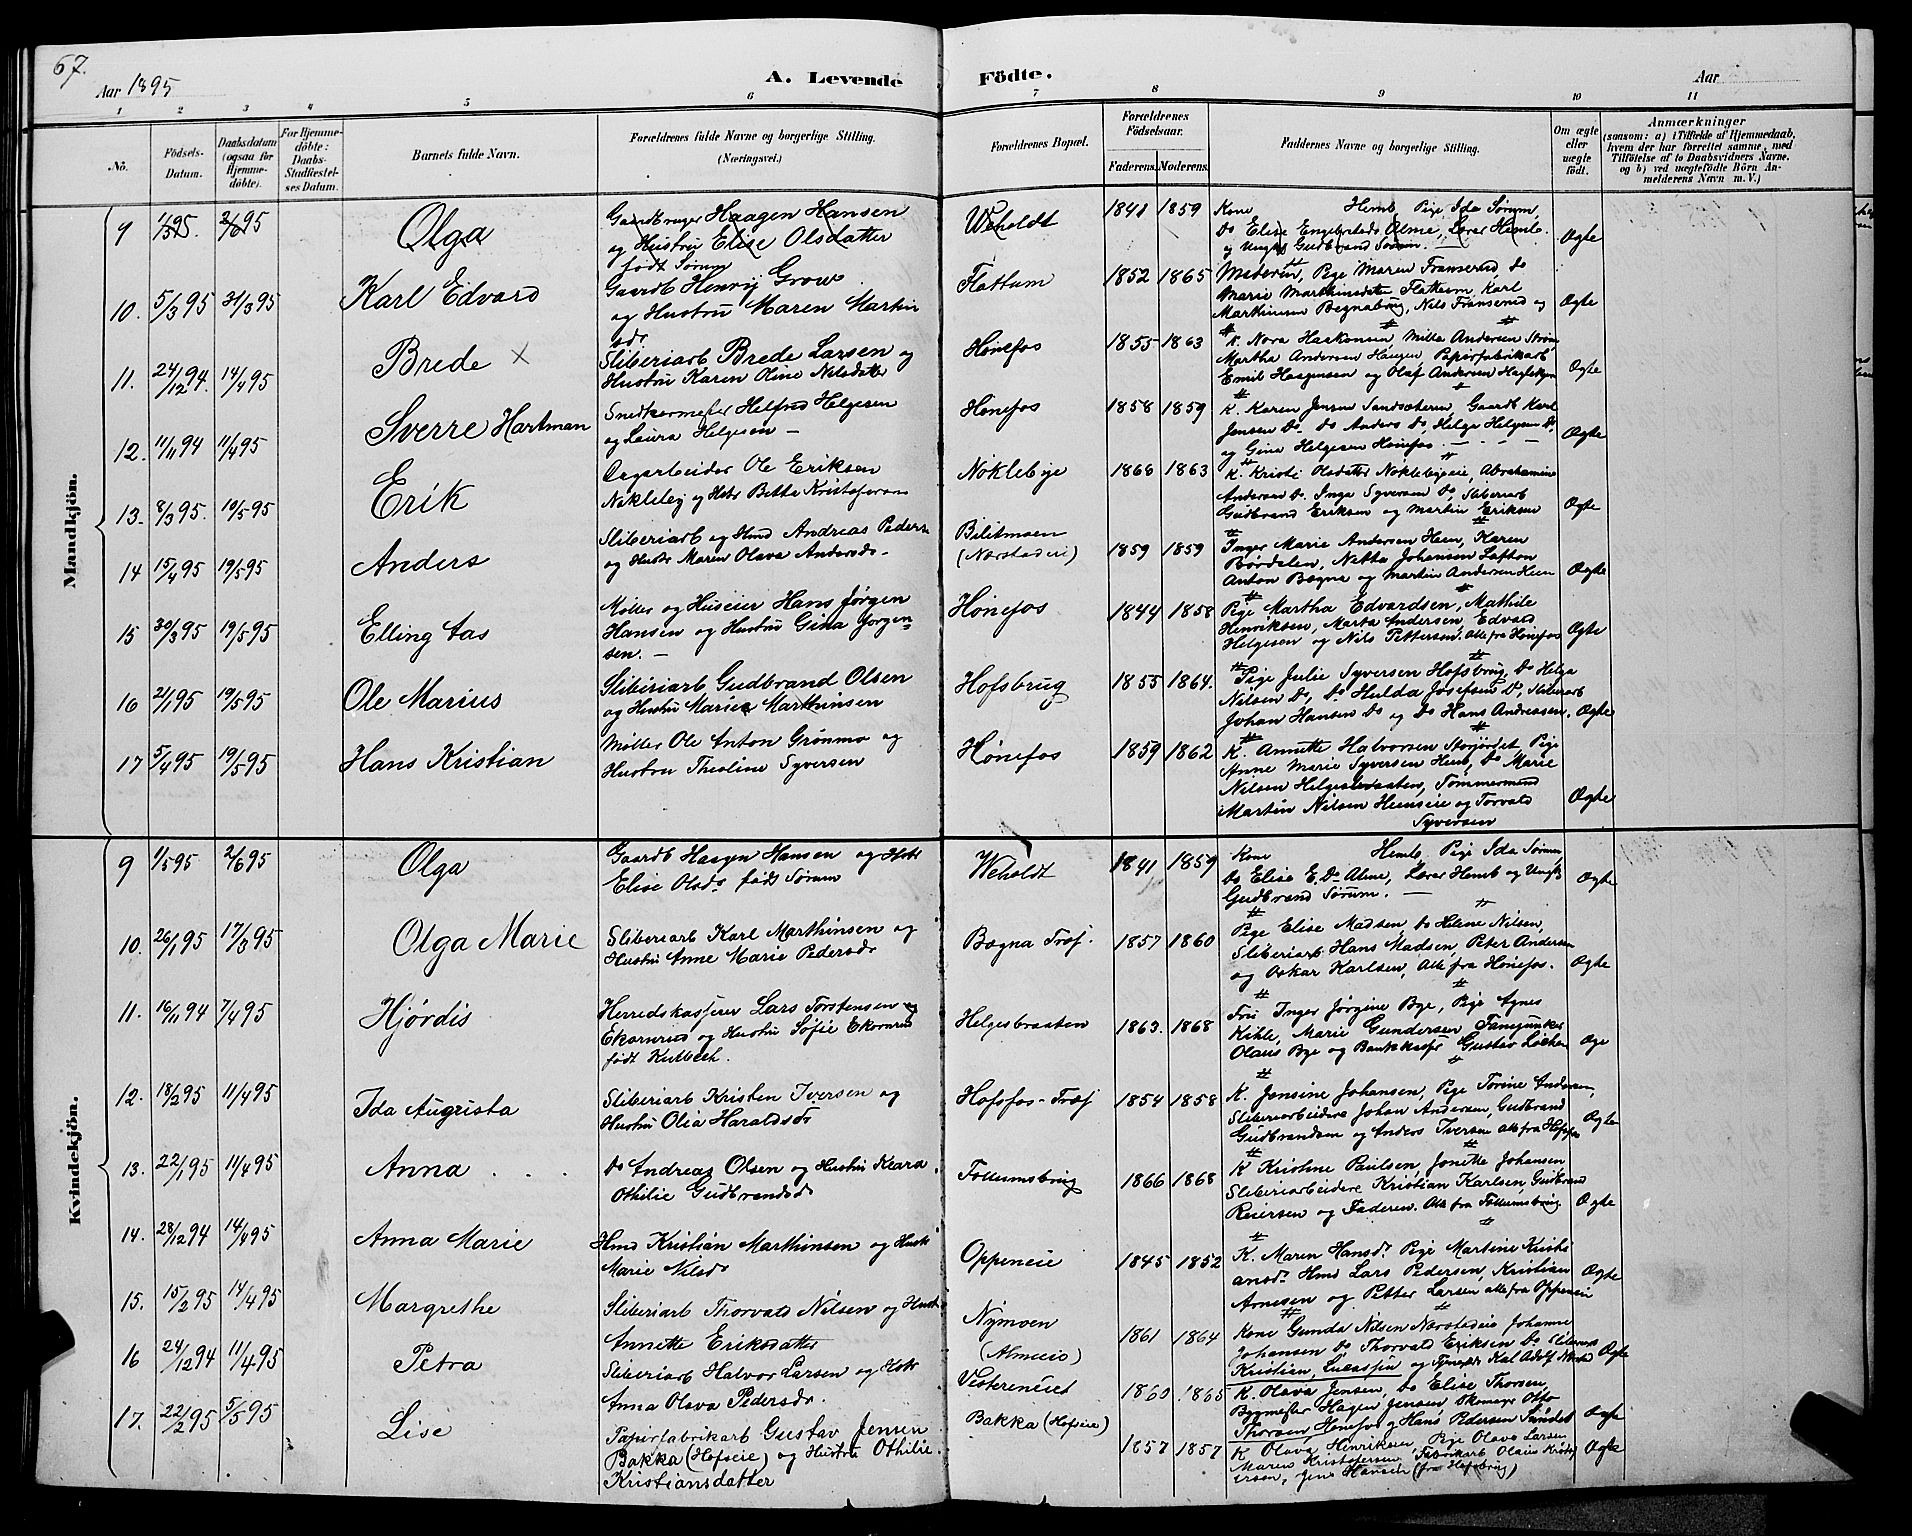 67.
Aar 1895
A. Levende
Födte.
Aar
1 2 3 4 5 6 7 8 9 10 11
No.
Födsels-Datum.
Daabsdatum (ogsaa for Hjemme-döbte).
For Hjemme-döbte: Daabs-Stadfæstel-ses Datum.
Barnets fulde Navn.
Forældrenes fulde Navne og borgerlige Stilling.
(Næringsvei.)
Forældrenes Bopæl.
Forældrenes Födselsaar.
Faderens. Moderens.
Faddernes Navne og borgerlige Stilling.
Om ægte eller uægte født.
Anmærkninger
(saasom: a) i Tilfælde af Hjemmedaab,
hvem der har forrettet samme, med
Tilföielse af to Daabsvidners Navne.
og b) ved uægtefödte Börn An-
melderens Navn m. V.)
Mandkjön.
9 1/5 95. 2/6 95 Olga
Gaardbruger Haagen Hansen
og Hustru Elise Olsdatter
født Sørum
Weholdt 1841 1859
Kone Hemb Pige Ida Sørum,
Do Elise Engebretsds Alme, Lærer Hemb
og Ungk Gudbrand Sørum. Ægte
10. 5/3 95 31/3 95 Karl Edvard
Gaardb Henrij Grow
og Hustru Maren Martin
sdr
Flattum 1852 1865
Moderen, Pige Maren Franserud Do
Marie Marthinsdatter Flattum, Karl
Marthinsen Begnabrug, Nils Franserud og Ægte
11. 24/12 94. 14/4 95 Brede ×
Sliberiarb Brede Larsen og
Hustru Karen Oline Nilsdatter
Hønefos 1855 1863
K. Nora Haakonsen, Milla Andersen
Martha Andersen Haugen Papirfabrikarb
Emil Haagensen og Olaf Andersen Ægte
12. 11/11 94 11/4 95 Sverre Hartman
Snedkermester Helfred Helgesen
og Laura Helgesen —
Hønefos 1858 1859
K. Karen Jensen Sandsæteren, Gaardb Karl
Jensen Do Do Anders Do, Helge Helgesen Do,
og Gina Helgesen Hønefos. Ægte
13. 8/3 95. 19/5 95 Erik
Dagarbeider Ole Eriksen
Nøkleby og Hstr Betta Kristofersen
Nøklebye 1868 1863
K. Kristi Olsdatter Nøklebyeie, Abrahamine
Andersen Do. Inga Syversen Do, Sliberiarb
Gudbrand Eriksen og Martin Eriksen Ægte
14 15/4 95 19/5 95 Anders
Sliberiarb og Hmd Andreas Pedersen
og Hustr Maren Olava Andersdr.
Bilitmoen
(Nærstadeie) 1859 1859
Inger Marie Andersen Heen, Karen
Børdalen, Netta Johansen Løfton
Anton Bagna og Martin Andersen Heen Ægte
15 30/3 95 19/5 95 Elling Aas
Møller og Huseier Hans Jørgen
Hansen og Hustru Gina Jørgen-
sen. —
Hønefos 1844 1858
Pige Martha Edvardsen, Mathilde
Henriksen, Marta Andersen, Edvard
Helgesen og Nils Pettersen. alle fra Hønefos Ægte
16 2/1 95 19/5 95 Ole Marius
Sliberiarb Gudbrand Olsen
og Hustru Marie Marthinsen
Hofsbrug 1855 1864.
Pige Julie Syversen Hofsbrug, Do Helga
Nilsen Do, Do Hulda Josefsen Do, Sliberarb
Johan Hansen Do og Do Hans Andreassen. Ægte
17 5/4 95 19/5 95 Hans Kristian
Møller Ole Anton Grønmo og
Hustru Theoline Syversen
Hønefos 1859 1862
K. Annette Halvorsen Storjordet, Pige
Anne Marie Syversen Hemb, Do Marie
Nilsen Helgesbraaten, Tømmermand
Martin Nilsen Heenseie og Torvald
Syversen Ægte
Kvindekjön.
9 1/5 95 2/6 95 Olga
Gaardb Haagen Hansen og Hstr
Elise Olsds født Sørum
Weholdt 1841 1859
Kone Hemb, Pige Ida Sørum,
Do Elise E. Ds Alme, Lærer Hemb og Ungk
Gudbrand Sørum. — Ægte
10. 26/1 95 17/3 95 Olga Marie
Sliberiarb Karl Marthinsen og
Hustru Anne Marie Pedersdr
Bægna Træf. 1857 1860
Pige Elise Madsen, Do Helene Nilsen,
Sliberiarb Hans Madsen, Peter Andersen
og Oskar Karlsen, Alle fra Hønefos. Ægte
11. 16/11 94 7/4 95 Hjørdis
Herredskasserer Lars Torstensen
Ekornrud og Hustru Sofie Ekornrud
født
Helgesbraaten 1863. 1868
Fru Inger Jørgine Bye, Pige Agnes
Kihle, Marie Gundersen,
Olaus Bye og Bankkasser Gustav Ægte
12. 18/2 95 11/4 95 Ida Augusta
Sliberiarb Kristen Iversen og
Hustru Olia Haraldsdr
Hofsfos-Træf 1854 1858
K. Jonsine Johansen, Pige Torine Andersen,
Sliberiarbeidere Johan Andersen, Gudbrand
Gudbrandsen og Anders Iversen alle fra Ægte
13. 22/1 95 11/4 95 Anna . .
Do Andreas Olsen og Hustru Klara
Othilie Gudbrandsdr
Follumsbrug 1866 1868
K Kristine Paulsen, Jonette Johansen
Sliberiarbeidere Kristian Karlsen, Gudbrand
Reiersen og Faderen. Alle fra Follumsbrug. Ægte
14. 28/12 94 14/4 95 Anna Marie
Hmd Kristian Marthinsen og Hustr
Marie Nilsdr
Oppeneie 1845 1852
K. Maren Hansdr. Pige Martine Kristi
ansdr. Hmd Lars Pedersen, Kristian
Arnesen og Petter Larsen alle fra Oppeneie Ægte
15. 15/2 95 14/4 95 Margrethe
Sliberiarb Thorvald Nilsen og Hustr
Annette Eriksdatter
Nymoen
(Almeie) 1861 1864
Kone Gunda Nilsen Nærstadeie Johanne
Johansen Do Thorvald Eriksen Do
Kristian Lucassen og Karl Adolf Ægte
16 24/12 94 11/4 95 Petra
Sliberiarb Halvor Larsen og Hstr
Anna Olava Pedersdr
Vesterneiet 1860 1865
K. Olava Jensen, Do Elise Thorsen,
Bygmester Hagen Jensen, Skomager Otto
Thorsen, Hønefos og Hans Pedersen Ægte
17. 22/2 95 5/5 95 Lise
Papirfabrikarb Gustav Jensen
Bakka (Hofseie) og Hustru Othilie
Kristiansdatter
Bakka (Hofseie) 1857 1857
K Olava Henriksen, Pige Olava Larsen
Maren Kristofersen, Olaus
Jens Hansen (fra Hofsbrug) Ægte